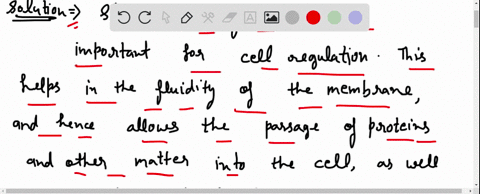 Solution =>
important for cell regulation. This
helps in the fluidity of the membrane,
and hence allows the passage of proteins
and other matter into the cell, as well